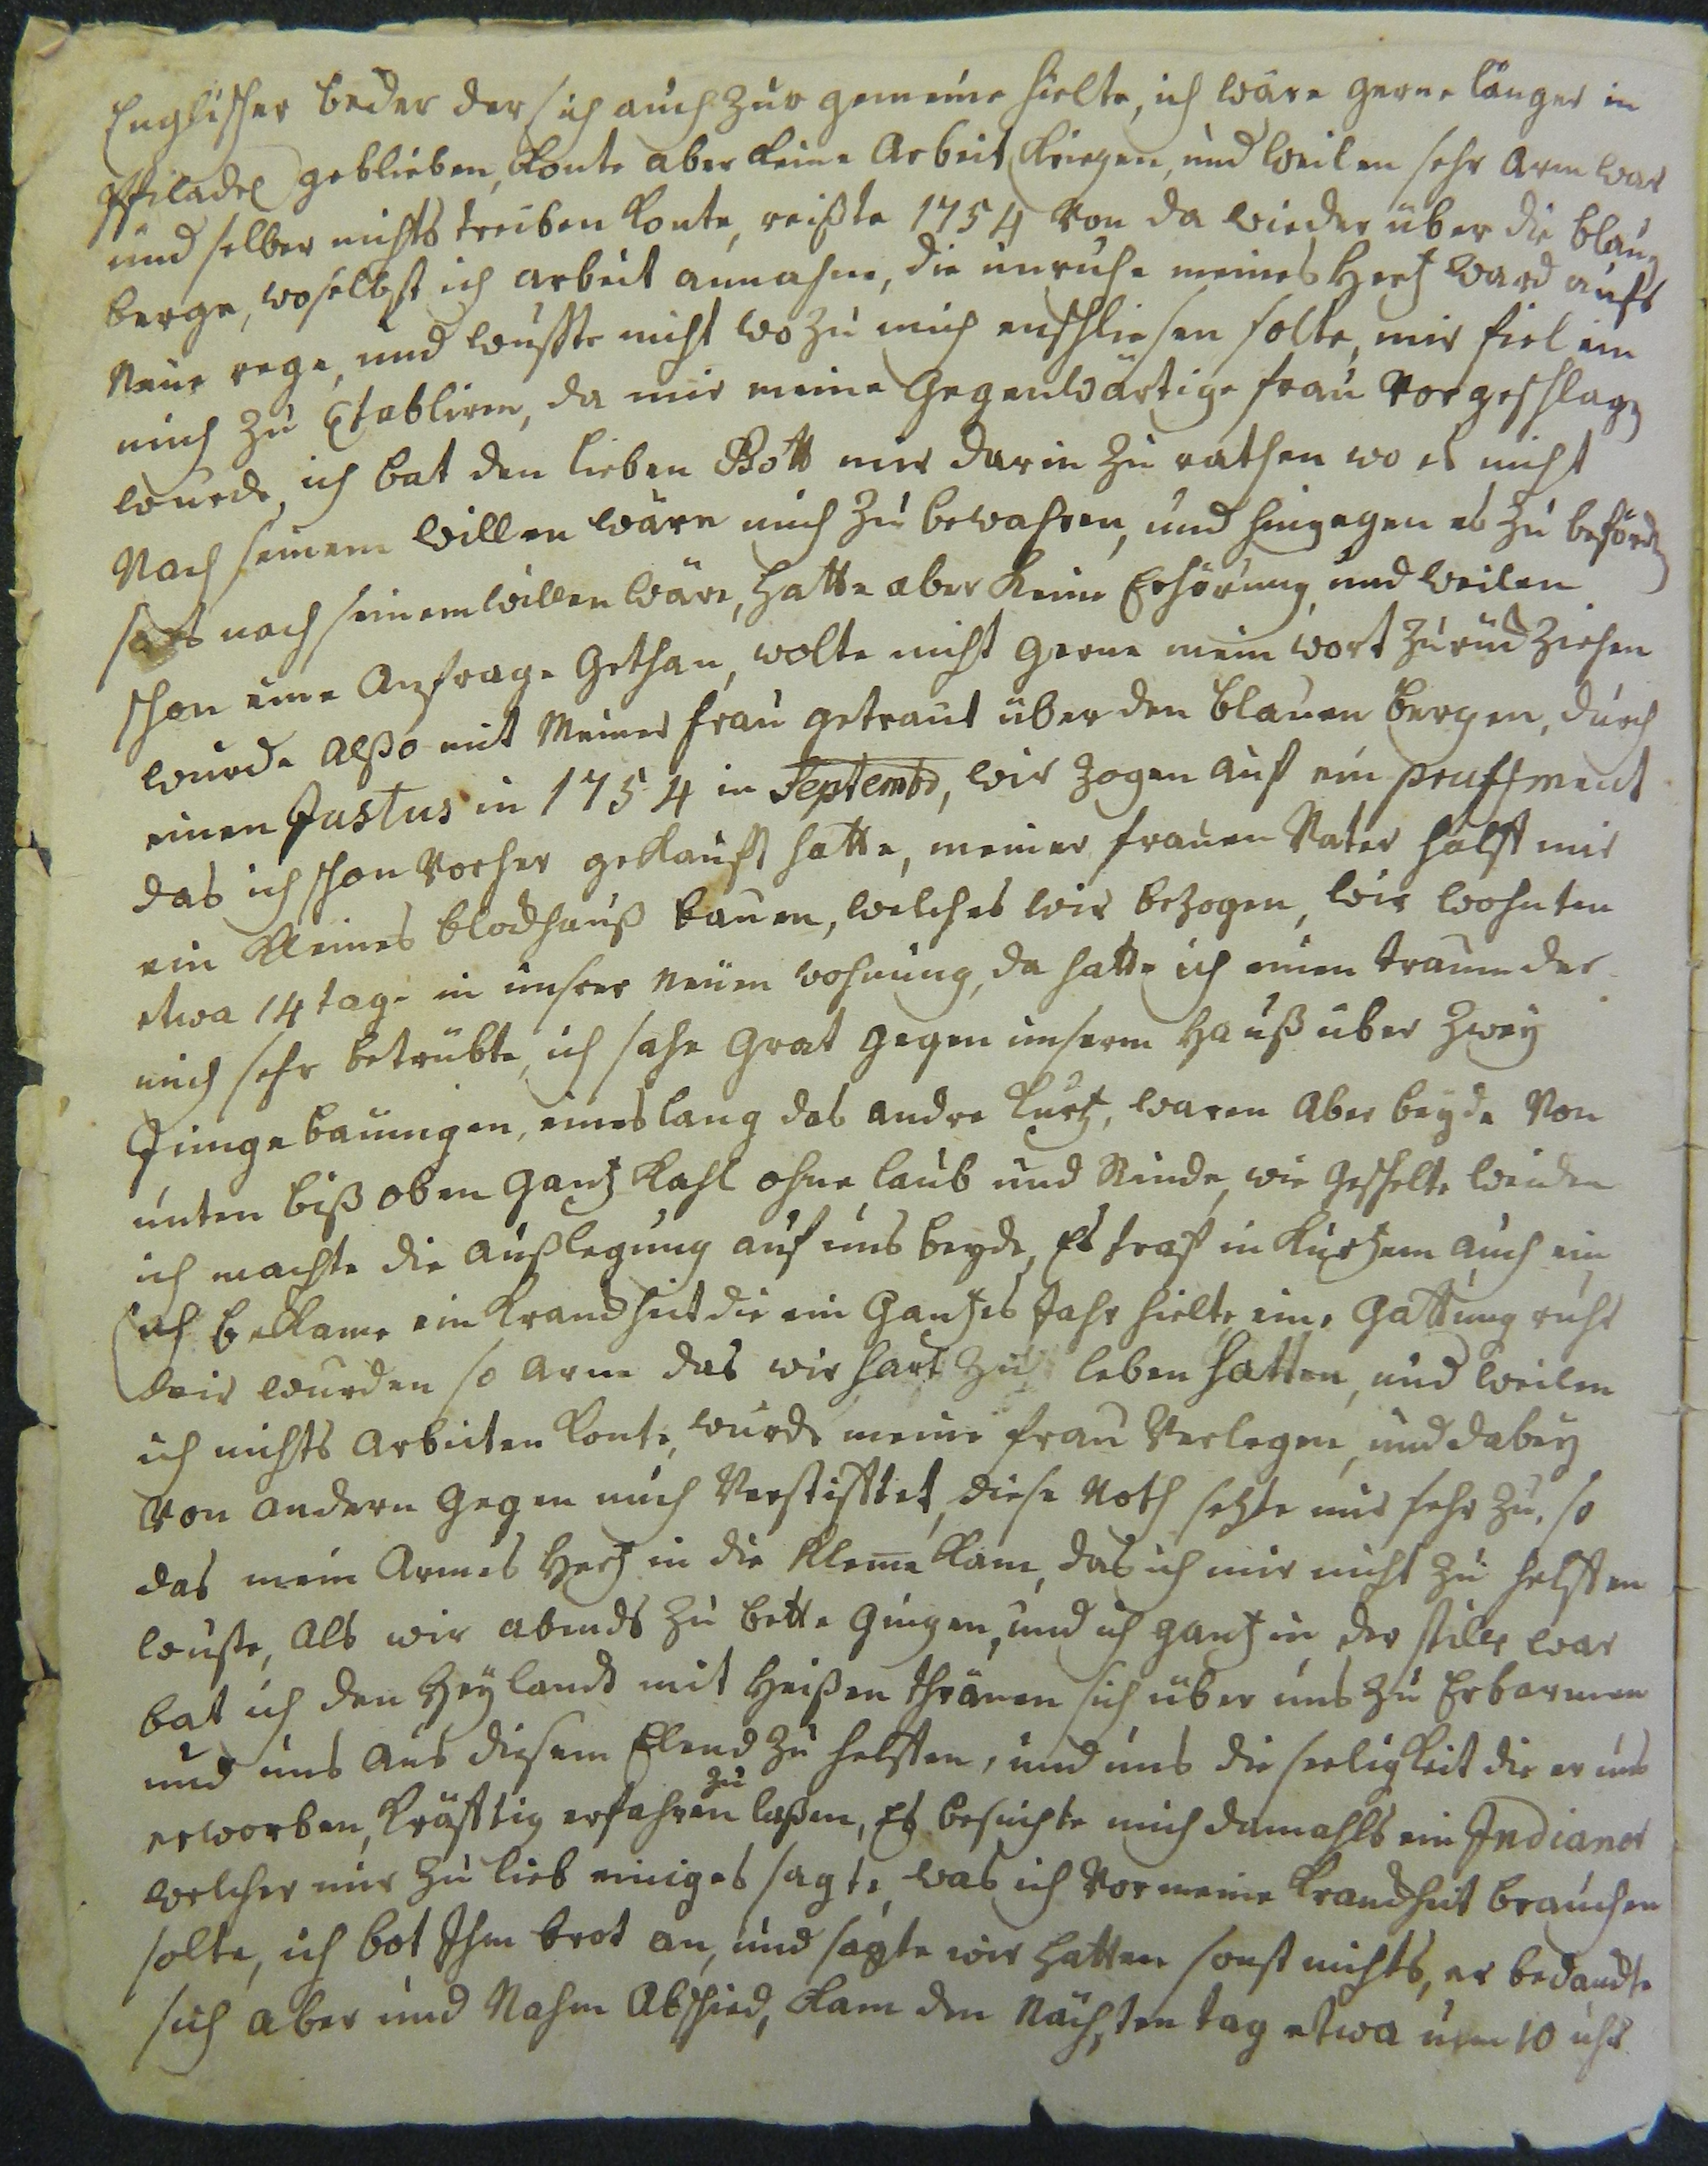 Englischer beder der sich auch zur gemeine hielte, ich wäre gerne länger in
Philadel geblieben, konte aber keine Arbeit kriegen, und weilen sehr arm war
und selber nichts treiben konte, reißte 1754 von da wieder über die blaue
berge, woselbst ich arbeit annahm, die unruhe meines Hertz ward aufs
Neue rege, und wuste nicht wo zu mich enschliesen solte, mir fiel ein
mich zu Etabliren, da mir meine Gegenwärtige frau vorgeschlagen
wurde, ich bat den lieben Gott mir darin zu rathen wo es nicht
Nach seinem willen wäre mich zu bewahren, und hingegen es zu beförden
so es nach seinem willen wäre, hatte aber keine Erhörung, und weilen
schon eine Anfrage Gethan, wolte nicht gerne mein wort zurück ziehen
wurde Alßo mit Meiner frau getraut über den blauen bergen, durch
einen Justus in 1754 in Septembr, wir zogen auf ein
das ich schon vorher gekauft hatte, meiner frauen Vater halff mir
ein kleines blockhauß bauen, welches wir bezogen, wir wohnten
etwa 14 tage in unsrer neuen wohnung, da hatte ich einen traum der
mich sehr betrübte, ich sahe Grat gegen unserm Hauß über zwey
Junge bäumgen, eines lang das andre kurtz, waren Aber beyde von
unten biß oben gantz kahl ohne laub und Rinde, wie geschelte weiden
ich machte die außlegung auf uns beyde, Es traf in kurtzem auch ein
ich bekame ein Kranckheit die ein Gantzes Jahr hielte, eine Gattung ruhr
wir wurden so arm das wir hart zu leben hatten, und weilen
ich nichts arbeiten konte, wurde meine frau Verlegen, und dabey
von andern gegen mich Verstifftet, diese Noth setzte mir sehr zu, so
das mein Armes Hertz in die Kleme kam, das ich mir nicht zu helffen
wuste, Als wir abends zu bette gingen, und ich gantz in der stille war
bat ich den Heylandt mit Heißen thränen sich über uns zu Erbarmen
und uns aus diesem Elend zu helffen, und uns die seeligkeit die er uns
erworben, kräfftig erfahren zu laßen, Es besuchte mich damahls ein Indianer
welcher mir zu lieb einiges sagte, was ich vor meine Kranckheit brauchen
solte, ich bot Ihm brot an, und sagte wir hatten sonst nichts, er bedanckte
sich aber und Nahm Abschied, kam den nächsten tag etwa um 10 uhr